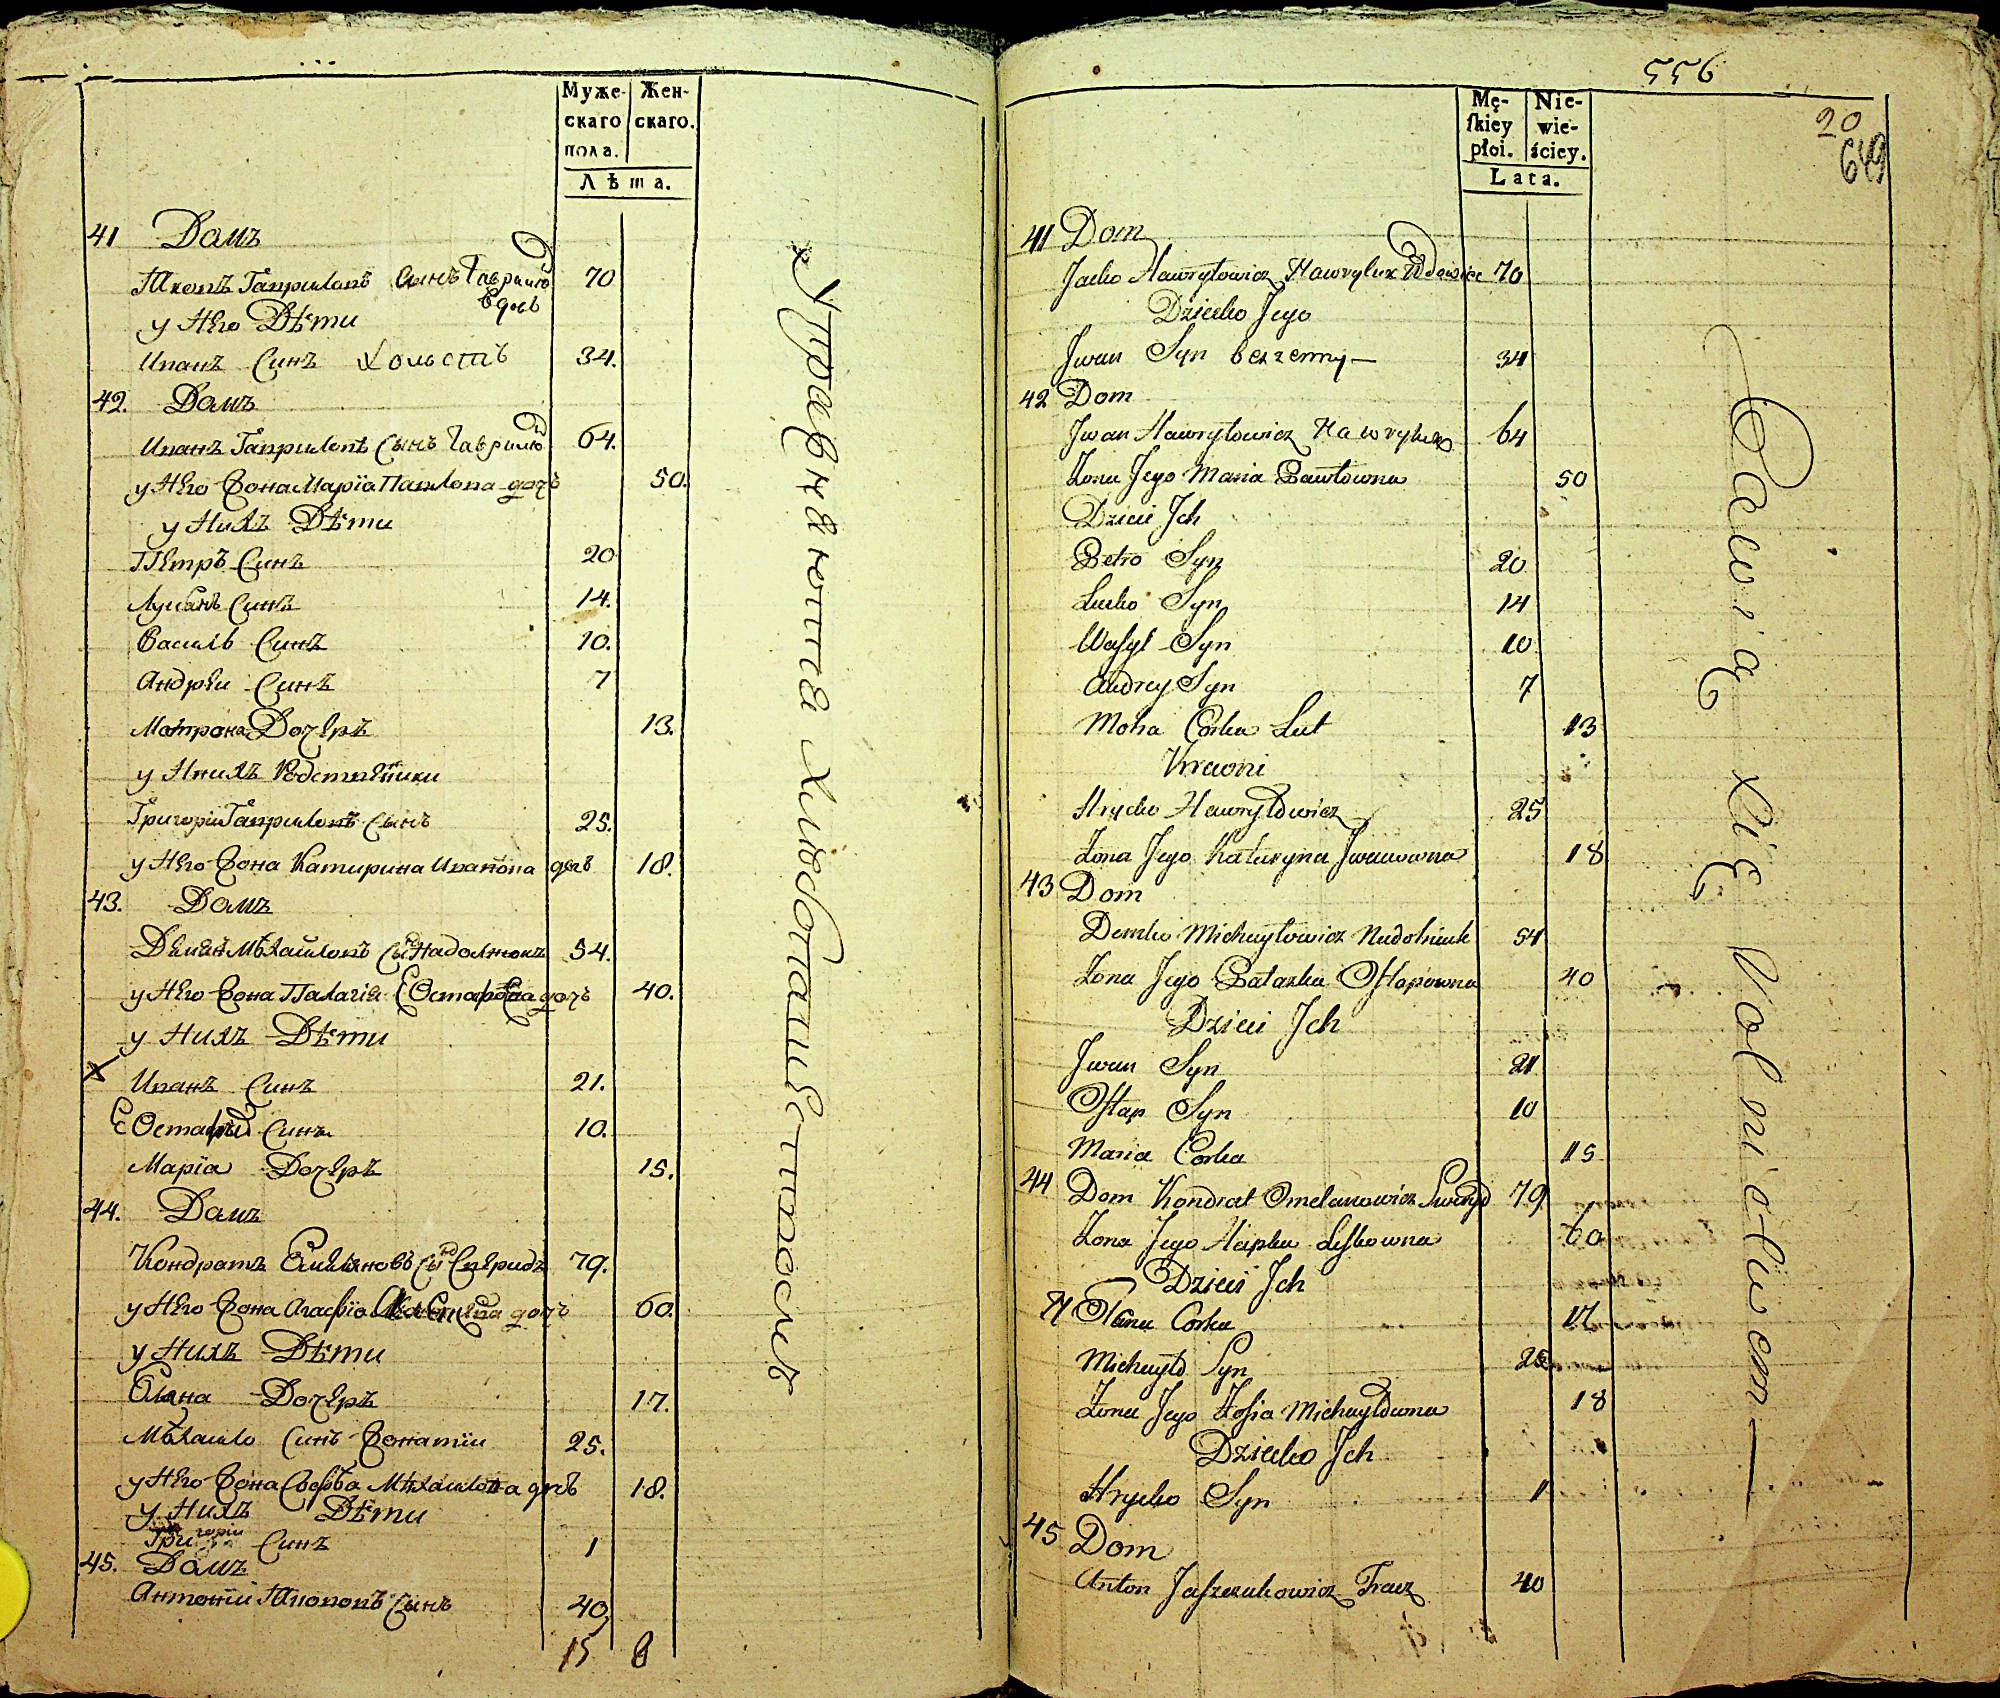 Муже- Жен-
скаго скаго.
пола.
Лѣта.
41 Домъ
Гавриловъ сынъ 70
вдовъ
у Него Дѣти
Иванъ Синъ холостъ 34.
42. Домъ
Иванъ Гавриловъ Сынъ 64.
у Него Жона Марїа Павлова дочъ 50.
у Нихъ Дѣти
Петръ Синъ 20
Синъ 14.
Василь Синъ 10.
Андрей Синъ 7
Матрона Дочеръ 13.
у Нихъ
Григорій Гавриловъ Сынъ 25.
у Него Жона Катирина Иванова дочъ 18.
43. Домъ
Демянъ Мѣхайловъ Сынъ 54.
у Него Жона Палагія дочъ 40.
у Нихъ Дѣти
Иванъ Синъ 21.
Синъ 10.
Марїа Дочеръ 15.
44. Домъ
Кондратъ Емиляновъ Сынъ Свередъ 79.
у Него Жона Агафїа дочъ 60.
у Нихъ Дѣти
Олена Дочеръ 17.
Мѣхайло Синъ Жонатїи 25.
у Него Жона Мѣхайлова дочъ 18.
у Нихъ Дѣти
Григорій Синъ 1
45. Домъ
Антоній Сынъ 40
15 8
Упражнѣнїе хлебопашествомъ
556
20
649
Mę- Nie-
ſkiey wie-
płci. ściey.
Lata.
41 Dom
Jacko Hawryłowicz Hawryluk Wdowiec 70
Dziecko Jego
Jwan Syn bezzenny 34
42 Dom
Jwan Hawryłowicz Hawryluk 64
Żona Jego Maria Pawłowna 50
Dzieci Jch
Petro Syn 20
Lucko Syn 14
Waſyl Syn 10
Andrey Syn 7
Corka Lat 13
Krewni
Hrycko Hawryłowicz 25
Żona Jego Kataryna Jwanowna 18
43 Dom
Demko Michayłowicz Nadolniuk 54
Żona Jego Pałazka Oſtapowna 40
Dzieci Jch
Jwan Syn 21
Oſtap Syn 10
Maria Corka 15
44 Dom Kondrat Omelanowicz Sweryd 79
Żona Jego Hapka Leſkowna 60
Dzieci Jch
Ołena Corka 17
Michayło Syn 25
Żona Jego Zoſia Michayłowna 18
Dziecko Jch
Hrycko Syn 1
45 Dom
Anton Jaſzczukowicz Tracz 40
Bawią się Rolnictwem